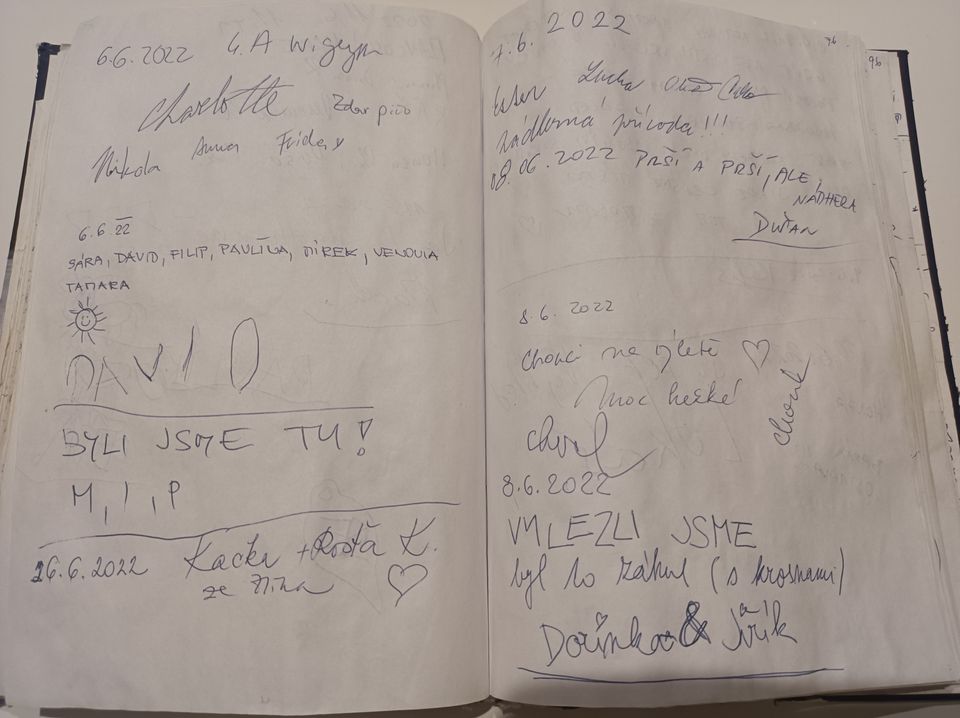 6.6.2022 4.A
Charlotte Zdar
Nikola Anna Friday
6.6.22
SÁRA, DAVID, FILIP, PAULÍNA, MIREK,
TAMARA
DAVID
BYLI JSME TU!
M, I, P
26.6.2022 Kačka + Rosťa K.
ze Zlína
7.6.2022
96
Ester Lucka
nádherná příroda!!!
08.06.2022 PRŠÍ A PRŠÍ, ALE,
NÁDHERA
DUŠAN
8.6.2022
na výletě
Moc hezké
8.6.2022
VYLEZLI JSME
byl to záhul (s krosnami)
Dorinka & Jiřík